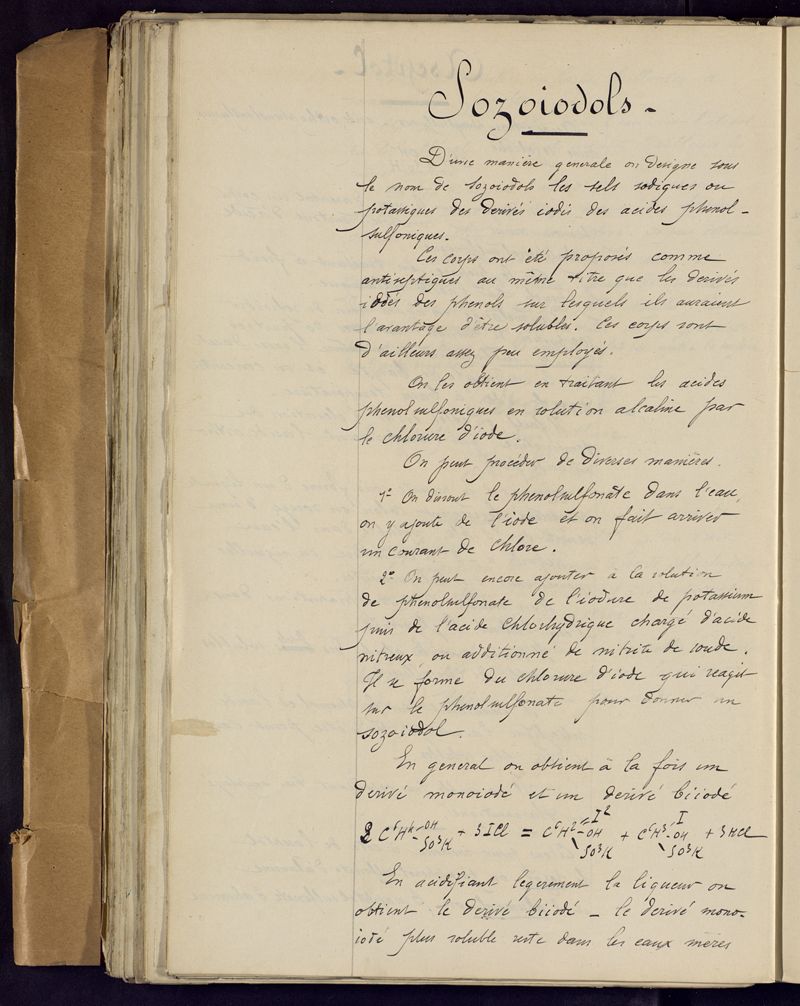 Sozoiodols -
D'une manière generale on designe sous
le nom de Sozoiodols les sels sodiques ou
potassiques des derivés iodés des acides phenol-
sulfoniques.
Ces corps ont été proposés comme
antiseptiques au même titre que les derivés
iodés des phenols sur lesquels ils auraient
l'avantage d'être solubles. Ces corps sont
d'ailleurs assez peu employés.
On les obtient en traitant les acides
phenolsulfoniques en solution alcaline par
le chlorure d'iode.
On peut procéder de diverses manières.
1° On dissout le phenolsulfonate dans l'eau,
on y ajoute de l'iode et on fait arriver
un courant de chlore.
2° On peut encore ajouter à la solution
de phenolsulfonate de l'iodure de potassium
puis de l'acide chlorhydrique chargé d'acide
nitreux, ou additionné de nitrite de soude.
Il se forme du chlorure d'iode qui reagit
sur le phenolsulfonate pour donner un
sozoiodol.
En general on obtient à la fois un
derivé monoiodé et un derivé biiodé
2 C⁶H⁴-OH-SO³K + 3ICl = C⁶H²=I²-OH\SO³K + C⁶H³-I-OH\SO³K + 3HCl
En acidifiant legerement la liqueur on
obtient le derivé biiodé - le derivé mono-
iodé plus soluble reste dans les eaux mères